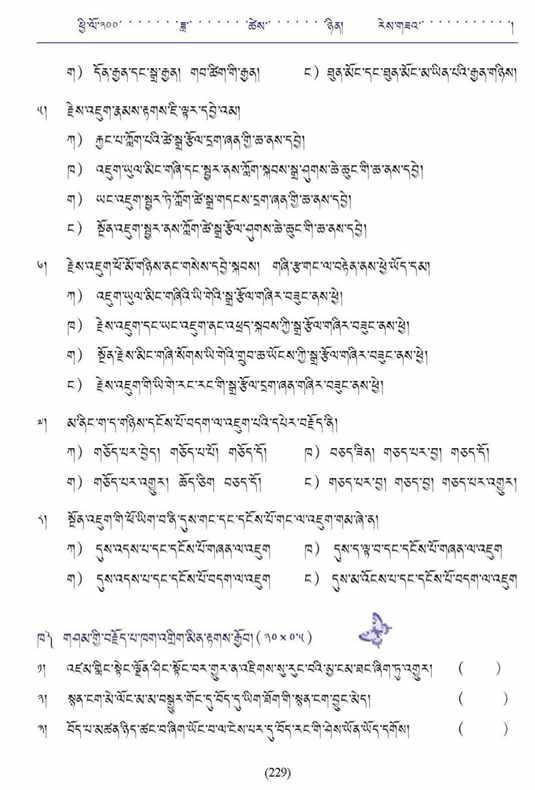 ཕྱི་ལོ་༢༠༠་་་་་་་་ཟླ་་་་་་་་་ཚེས་་་་་་་་་ཉིན། རེས་གཟའ་་་་་་་་་་་་།
ག) དོན་རྒྱན་དང་སྒྲ་རྒྱན། གབ་ཚིག་གི་རྒྱན། ང) ཐུན་མོང་དང་ཐུན་མོང་མ་ཡིན་པའི་རྒྱན་གཉིས།
༥། རྗེས་འཇུག་རྣམས་རྟགས་ཇི་ལྟར་དབྱེ་འམ།
ཀ) རྐྱང་པ་ཀློག་པའི་ཚེ་སྒྲ་རྩོལ་དྲག་ཞན་གྱི་ཆ་ནས་དབྱེ།
ཁ) འཇུག་ཡུལ་མིང་གཞི་དང་སྦྱར་ནས་ཀློག་སྐབས་སྒྲ་ཤུགས་ཆེ་ཆུང་གི་ཆ་ནས་དབྱེ།
ག) ཡང་འཇུག་སྦྱར་ཏེ་ཀློག་ཚེ་སྒྲ་གདངས་དྲག་ཞན་གྱི་ཆ་ནས་དབྱེ།
ང) སྔོན་འཇུག་སྦྱར་ནས་ཀློག་ཚེ་སྒྲ་རྩོལ་ཤུགས་ཆེ་ཆུང་གི་ཆ་ནས་དབྱེ།
༦། རྗེས་འཇུག་ཕོ་མོ་གཉིས་ནང་གསེས་དབྱེ་སྐབས། གཞི་རྩ་གང་ལ་བརྟེན་ནས་ཕྱེ་ཡོད་དམ།
ཀ) འཇུག་ཡུལ་མིང་གཞིའི་ཡི་གེའི་སྒྲ་རྩོལ་གཞིར་བཟུང་ནས་ཕྱེ།
ཁ) རྗེས་འཇུག་དང་ཡང་འཇུག་ནང་འཕྲད་སྐབས་ཀྱི་སྒྲ་རྩོལ་གཞིར་བཟུང་ནས་ཕྱེ།
ག) སྔོན་རྗེས་མིང་གཞི་སོགས་ཡི་གེའི་གྲུབ་ཆ་ཡོངས་ཀྱི་སྒྲ་རྩོལ་གཞིར་བཟུང་ནས་ཕྱེ།
ང) རྗེས་འཇུག་གི་ཡི་གེ་རང་རང་གི་སྒྲ་རྩོལ་དྲག་ཞན་གཞིར་བཟུང་ནས་ཕྱེ།
༧། མ་ནིང་ག་ད་གཉིས་དངོས་པོ་བདག་ལ་འཇུག་པའི་དཔེར་བརྗོད་ནི།
ཀ) གཅོད་པར་བྱེད། གཅོད་པ་པོ། གཅོད་དོ། ཁ) བཅད་ཟིན། གཅད་པར་བྱ། གཅད་དོ།
ག) གཅོད་པར་འགྱུར། ཆོད་ཅིག བཅད་དོ། ང) གཅད་པར་བྱ། གཅད་བྱ། གཅད་པར་འགྱུར།
༨། སྔོན་འཇུག་གི་ཕོ་ཡིག་བ་ནི་དུས་གང་དང་དངོས་པོ་གང་ལ་འཇུག་གམ་ཞེ་ན།
ཀ) དུས་འདས་པ་དང་དངོས་པོ་གཞན་ལ་འཇུག ཁ) དུས་ད་ལྟ་བ་དང་དངོས་པོ་གཞན་ལ་འཇུག
ག) དུས་འདས་པ་དང་དངོས་པོ་བདག་ལ་འཇུག ང) དུས་མ་འོངས་པ་དང་དངོས་པོ་བདག་ལ་འཇུག
ཁ༽ གཤམ་གྱི་བརྗོད་པ་ཁག་འགྲིག་མིན་རྟགས་རྒྱོབ། (༡༠×༠.༥)
༡། འཛམ་གླིང་སྟེང་ལྗོན་ཤིང་སྟོང་བར་གྱུར་ན་འཇིགས་སུ་རུང་བའི་མྱ་ངམ་ཐང་ཞིག་ཏུ་འགྱུར། ( )
༢། སྙན་ངག་མེ་ལོང་མ་མ་བསྒྱུར་གོང་དུ་བོད་དུ་ཡིག་ཐོག་གི་སྙན་ངག་བྱུང་མེད། ( )
༣། བོད་པ་མཚན་ཉིད་ཚང་བ་ཞིག་ཡོང་བ་ལ་ངེས་པར་དུ་བོད་རང་གི་ཤེས་ཡོན་ཡོད་དགོས། ( )
(229)